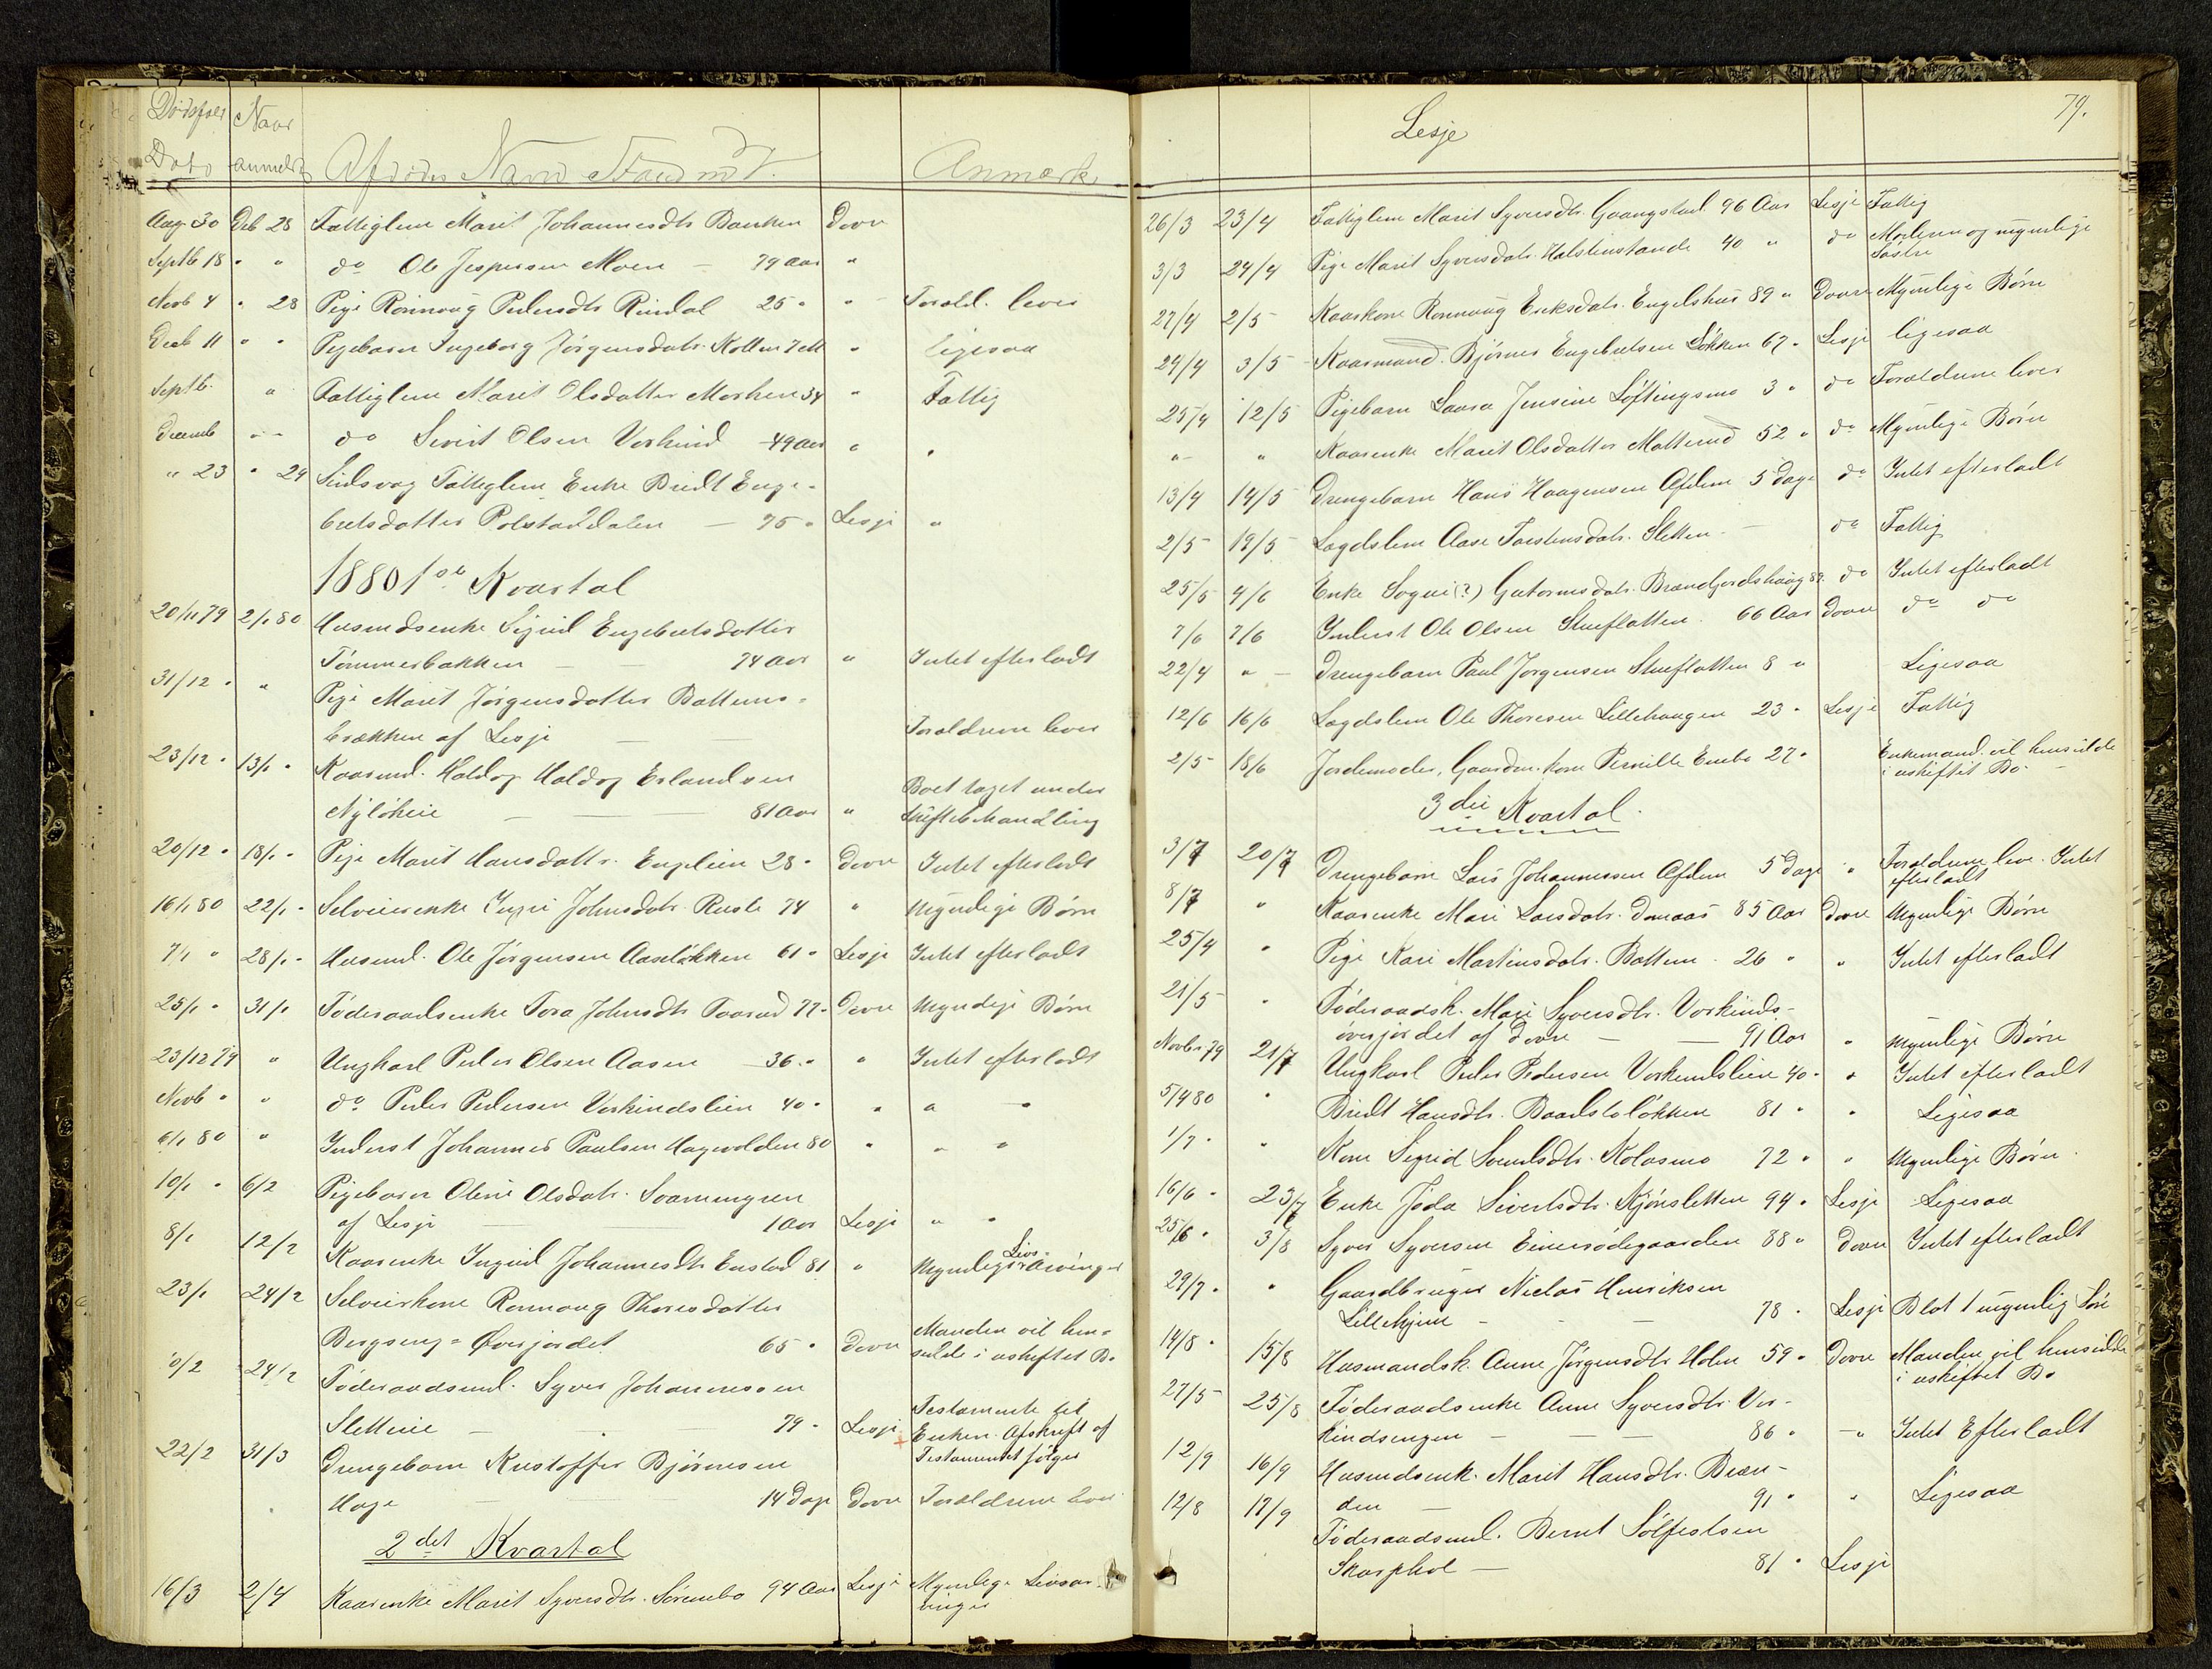 Dødsfald Naar
Dato anmeldt Afdødes Navn Stand m.v. Anmærk.
Aug 30 Deb 28 Fattiglem Marit Johannesdtr Banken Dovre
Septb 18 " " do Ole Jespersen Moen — 79 Aar "
Novb 4 " 28 Pige Rønnaug Pedersdtr Rindal 25 " " Foræld. lever
Decb 11 " " Pigebarn Ingeborg Jørgensdatr. Kollen 7 M " ligesaa
Septb. " Fattiglem Marit Olsdatter Morken 34 " Fattig
Decemb " - do Sivert Olsen Vorkind - 49 Aar " "
" 23 " 29 Sindsvag Fattiglem Enke Bridt Enge-
bretsdatter Polstaddalen — 75 " Lesje "
1880 1ste Kvartal
20/11 79 2/1 80 Husmdsenke Sigrid Engebretsdatter
Tømmerbakken — — 74 Aar " Intet efterladt
31/12 " " Pige Marit Jørgensdatter Bottems-
brækken af Lesje — — Forældrene lever
23/12 " 13/1 " Kaarmd. Haldog Haldog Erlandsen
Nyløkeie — — 81 Aar " Boet taget under Skiftebehandling
20/12 " 18/1 " Pige Marit Hansdattr. Englien 28 " Dovre Intet efterladt
16/1 80 22/1 " Selveierenke Johnsdatr. Rusti 74 " Myndige Børn
7/1 " 28/1 " Husmd. Ole Jørgensen Aaseløkken 61 " Lesje Intet efterladt
25/1 " 31/1 Føderaadsenke Tora Johnsdtr Toarud 77 " Dovre Myndige Børn
23/12 79 " Ungkarl Peder Olsen Aasen — 36 " " Intet efterladt
Novb " " do Peder Pedersen Vorkindslien 40 " " " "
6/1 80 " Inderst Johannes Paulsen Hagevolden 80 " " "
10/1 " 6/2 Pigebarn Oline Olsdatr. Svarmyren
af Lesje — 1 Aar Lesje " "
8/1 12/2 Kaarenke Ingrid Johannesdtr Enstad 81 " Myndige Livs-Arvinger
23/1 24/2 Selveierkone Rønnaug Thoresdatter
Bergseng = Øverjordet 65 " Dovre Manden vil hen-sidde i uskiftet Bo
10/2 24/2 Føderaadsmd. Syver Johannessen
Sletteie — 79 " Lesje Testamente til Enken. Afskrift af Testamentet følger
22/2 31/3 Drengebarn Kristoffer Bjørnsen
Hage 14 Dage Dovre Forældrene lever
2det Kvartal
16/3 2/4 Kaarenke Marit Syversdtr. Sørumbo 94 Aar Lesje Myndige Livsar-vinger
Lesje 79.
26/3 23/4 Fattiglem Marit Syversdtr. Gaangstad 96 Aar Lesje Fattig
3/3 24/4 Pige Marit Syversdatr. Halstenstande 40 " do Moderen og myndige Søstre
27/4 2/5 Kaarkone Rønnaug Eriksdatr. Engelshus 89 " Dovre Myndige Børn
29/4 3/5 Kaarmand. Bjørner Engebretsen Løkken 67 " Lesje ligesaa
25/4 12/5 Pigebarn Laura Jensine Løftingsmo 3 " do Forældrene lever
" - " Kaarenke Marit Olsdatter Motterud 52 " do Myndige Børn
13/4 14/5 Drengebarn Hans Haagensen Afdem 5 Dage do Intet efterladt
2/5 19/5 Lægdslem Aase Torstensdatr. Sletten — do Fattig
25/5 4/6 Enke Sogni(?) Gutormsdatr. Brandfjordshaug 89. do Intet efterladt
7/6 7/6 Inderst Ole Olsen Stueflotten. 66 Aar Dovre do do
22/4 " - Drengebarn Paul Jørgensen Stueflotten 8 " Ligesaa
12/6 16/6 Lægdslem Ole Thoresen Lillehaugen 23 " Lesje Fattig
2/5 18/6 Jordemoder, Gaardm. kone Pernille Enebo 27 " Enkemand. vil hensidde i uskiftet Bo.
3die Kvartal.
3/7 20/7 Drengebarn Lars Johannessen Afdem 5 Dage " Forældrene leve. Intet efterladt
8/7 " Kaarenke Mari Larsdatr. Domaas 85 Aar Dovre Myndige Børn
25/4 " Pige Kari Martinsdatr. Bottem. 26 " " Intet efterladt
21/5 " Føderaadsk. Mari Syversdtr. Vorkinds-
øverjordet af Dovre — — 91 Aar " Myndige Børn
Novbr. 79 21/7 Ungkarl Peder Pedersen Vorkindslien 40 " " Intet efterladt
5/4 80 " Bridt Hansdtr. Baadstoløkken 81 " " Ligesaa
1/7 " " Kone Sigrid Svendsdtr. Kolasmo 72 " " Myndige Børn.
16/6 " 23/7 Enke Joda Sivertsdtr. Kjønsletten 94 " Lesje Ligesaa
25/6 " 3/8 Syver Syversen Einersødegaarden 88 " Dovre Intet efterladt
29/7 " " Gaardbruger Niclas Henriksen
Lillehjem — - - 78 " Lesje Blot 1 myndig Søn
14/8 " 15/8 Husmandsk. Anne Jørgensdtr Holm 59 " Dovre Manden vil hensidde i uskiftet Bo
27/5 25/8 Føderaadsenke Anne Syversdtr. Vor-
kindsengen — — — 86 " - " Intet Efterladt
12/9 16/9 Husmdsenk. Marit Hansdtr. Bræn-
den — 91 " " Ligesaa
12/8 17/9 Føderaadsmd. Bernt Sølfestsen
Skarphol — 81 " Lesje